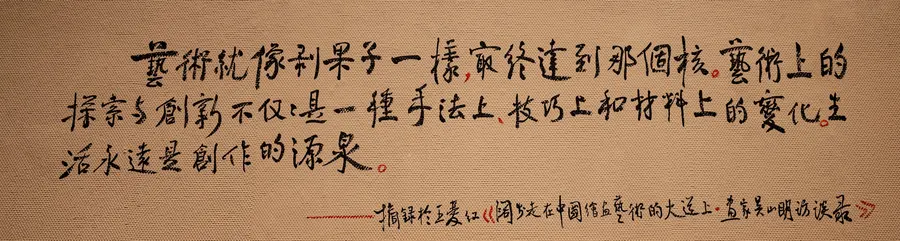 藝術就像剥果子一樣,最終達到那個核。藝術上的
探索与創新不仅仅是一種手法上、技巧上和材料上的變化。生
活永遠是創作的源泉。
——摘録於王愛红《闊步走在中國绘画藝術的大道上·畫家吴山明访谈录》